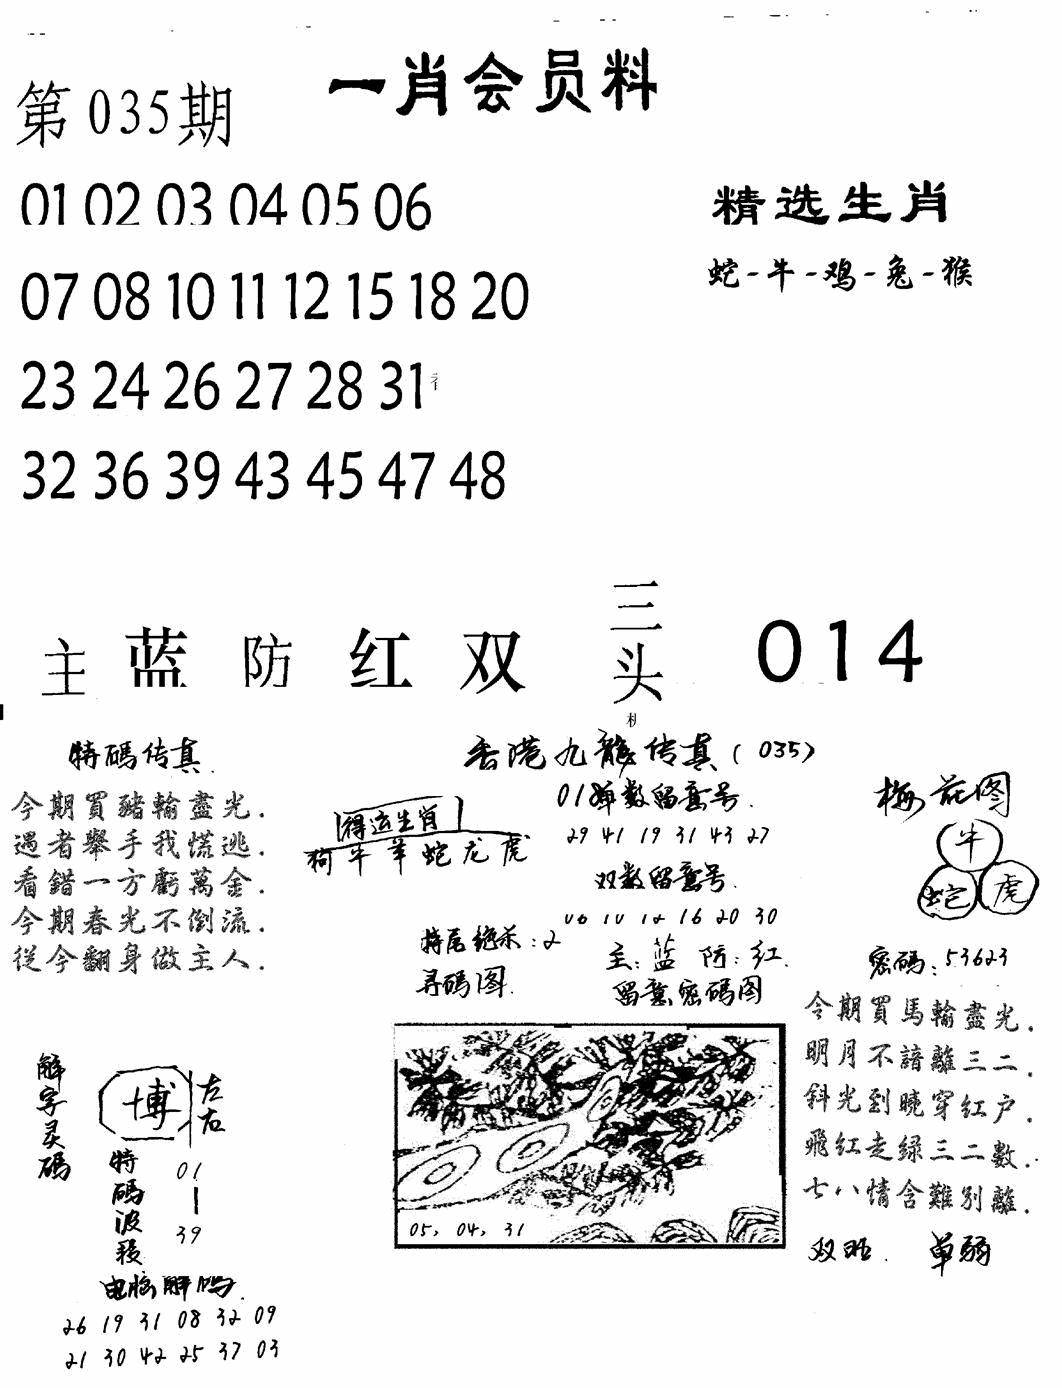 一肖会员料
第035期
01 02 03 04 05 06
07 08 10 11 12 15 18 20
23 24 26 27 28 31
32 36 39 43 45 47 48
精选生肖
蛇-牛-鸡-兔-猴
主蓝防红双
三头
014
特碼传真
今期買豬輸盡光.
遇者舉手我慌逃.
看錯一方虧萬金.
今期春光不倒流.
從今翻身做主人.
得运生肖
狗牛羊蛇龙虎
香港九龍传真(035)
018单数留意号.
29 41 19 31 43 27
双数留意号.
16 20 30
特尾绝杀:2
寻码图.
主:蓝 防:红.
留意密码图
05, 04, 31
梅花图
牛
蛇 虎
密碼:53623
今期買馬輸盡光.
明月不諳離三二.
斜光到曉穿紅户.
飛红走緑三二數.
七八情含難別離.
双 单
解字灵碼
博
左右
特碼波段
01
39
电脑解码.
26 19 31 08 32 09
21 30 42 25 37 03